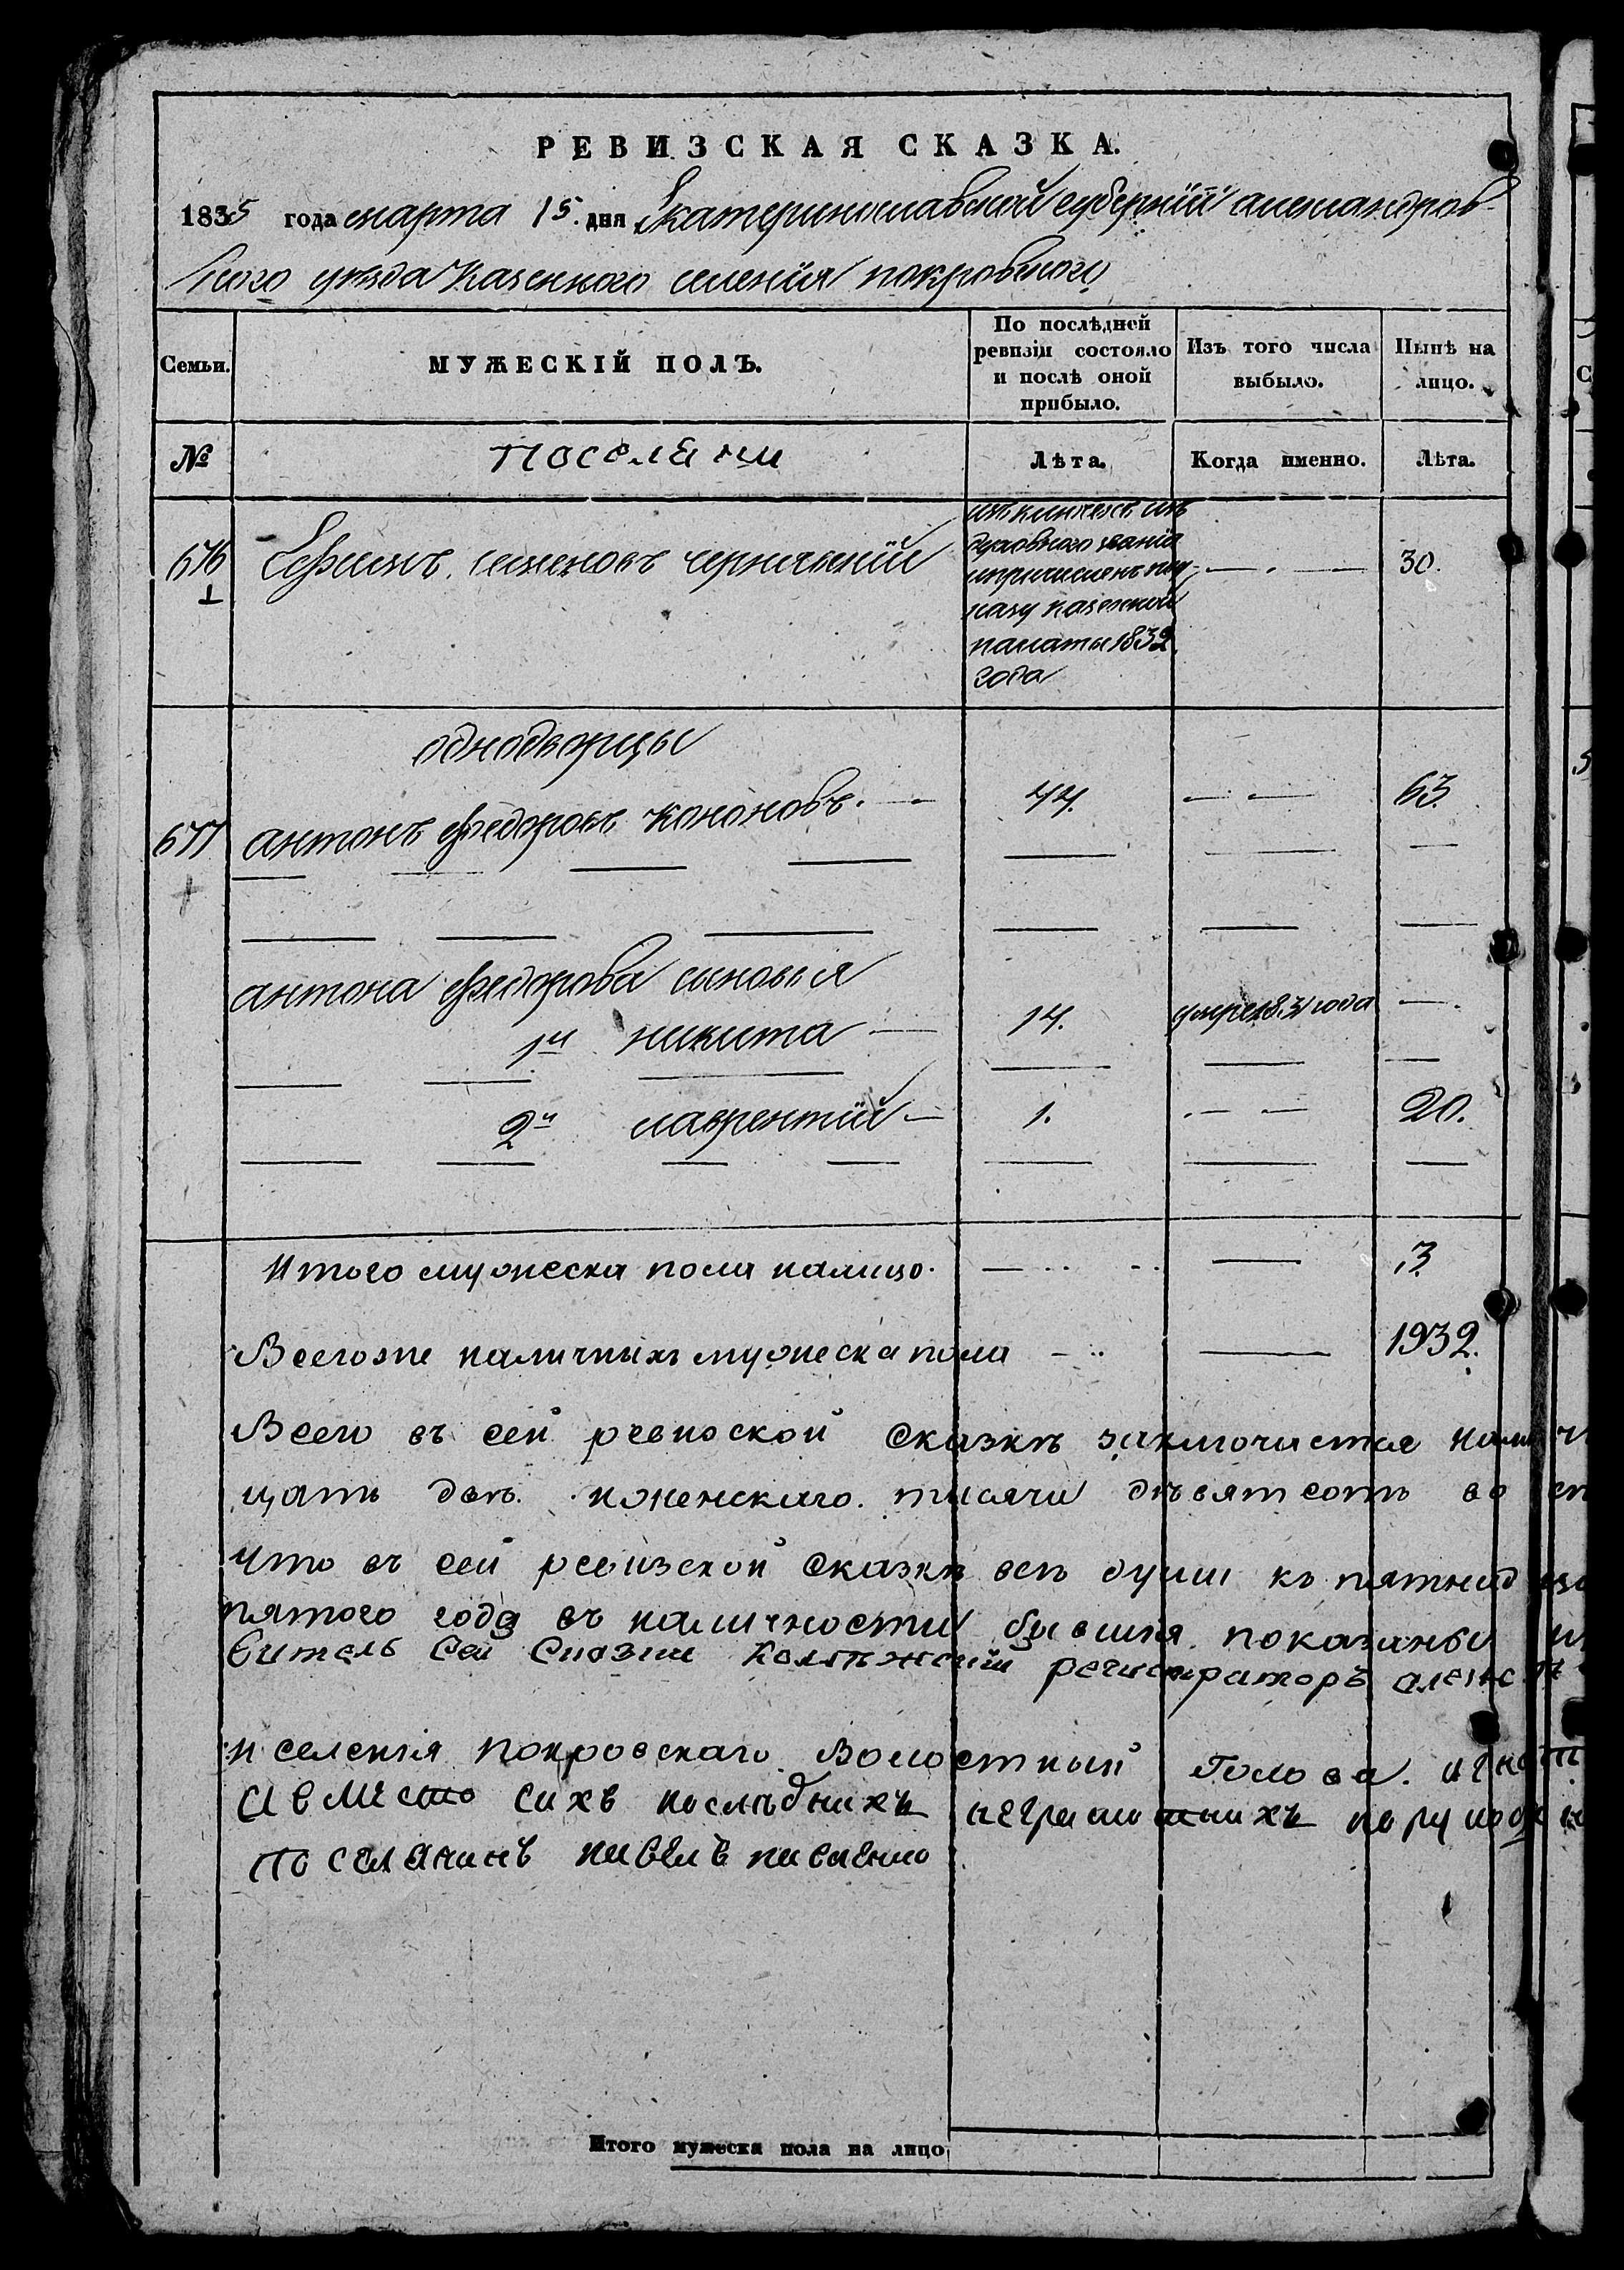 РЕВИЗСКАЯ СКАЗКА.
1835 года марта 15. дня Екатеринославской губерніи александров-
ского уезда Казенного селенія покровского
Семьи.
МУЖЕСКІЙ ПОЛЪ.
По послѣдней ревизіи состояло и послѣ оной прибыло.
Изъ того числа выбыло.
Нынѣ на лицо.
№
Поселяни
Лѣта.
Когда именно.
Лѣта.
676
1
Ефимъ семеновъ чернявскій
изъ
духовного званія
казенной
палаты 1832
года
30.
однодворцы
677
антонъ федоровъ кононовъ.
44.
63.
антона федорова сыновья
1й никита
14.
умре 1831 года
2й лаврентій
1.
20.
Итого мужеска пола налицо.
3.
Всегоже наличныхъ мужеска пола
1932.
Всего въ сей ревиской сказкѣ заключается
цать два. женскаго. тисячи дѣвятсотъ во
Что въ сей ревизской сказкѣ всѣ души къ
пятого года въ наличности бывшія показаны
витель Сей Сказки Колѣжский регистраторъ
и селенія покровскаго Волостный Голова.
А вместо сихъ послѣднихъ неграмотнихъ
поселянинъ павелъ
Итого мужеска пола на лицо